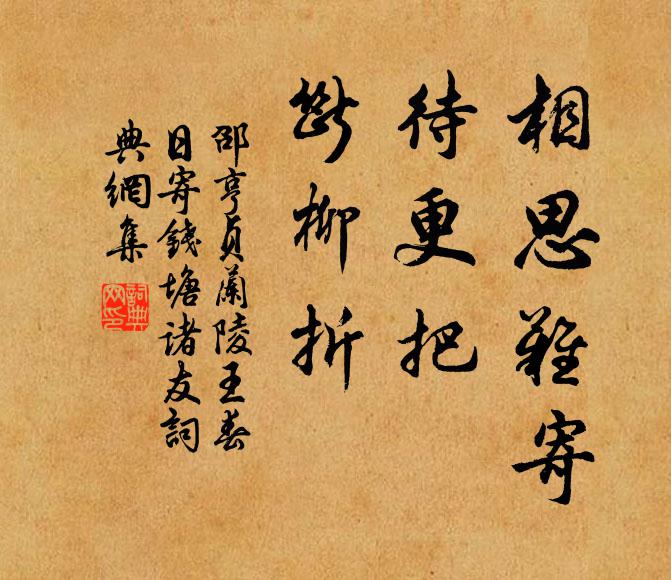 相思難寄
待更把
斷柳折
邵亨貞蘭陵王春
日寄錢塘諸友詞
典網集
詞典
网印